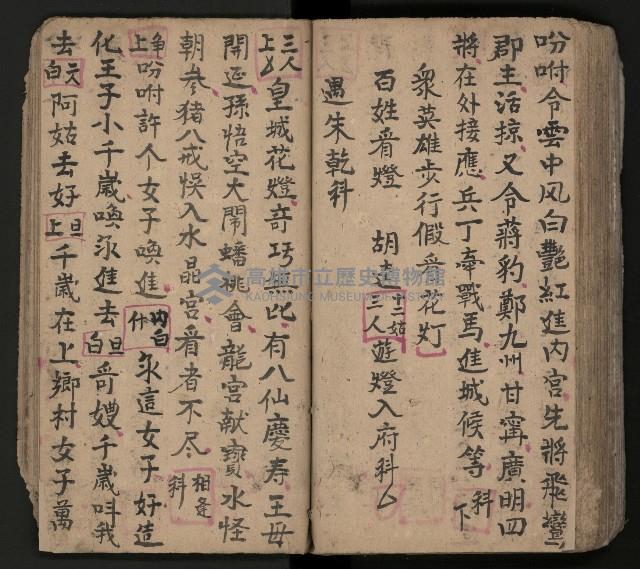 吩咐令雲中风白艷紅進內宮先將飛鸞
郡主活掠又令蔣豹鄭九州甘寧廣明四
將在外接應兵丁牽戰馬進城候等科下
眾英雄步行假看花灯
百姓看燈 胡逵二姑三人遊燈入府科
遇朱乾科
三人上 皇城花燈奇巧無比有八仙慶寿王母
開延孫悟空大鬧蟠桃會龍宮献寶水怪
朝參猪八戒悞入水晶宮看者不尽相逢科
净上吩咐許个女子喚進内白什永這女子好造
化王子小千歲喚永進去旦白哥嫂千歲呌我
去天白阿姑去好旦上千歲在上鄉村女子萬
高雄市立歷史博物館
KAOHSIUNG MUSEUM OF HISTORY